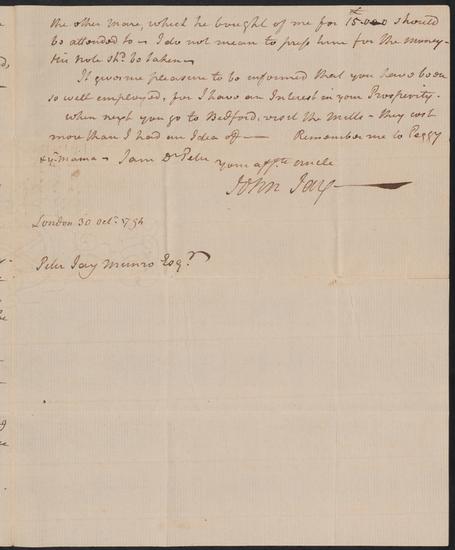 the other mare, which he bought of me for £15.0.0 should
be attended to – I do not mean to press him for the money –
His note shd. be taken –
It gives me pleasure to be informed that you have been
so well employed, for I have an Interest in your Prosperity.
when next you go to Bedford, visit the Mills – they cost
more than I had an Idea of — Remember me to Peggy
& yr. mama – I am Dr. Peter your affte. uncle
John Jay —
London 30 Octr. 1794
Peter Jay Munro Esqr.